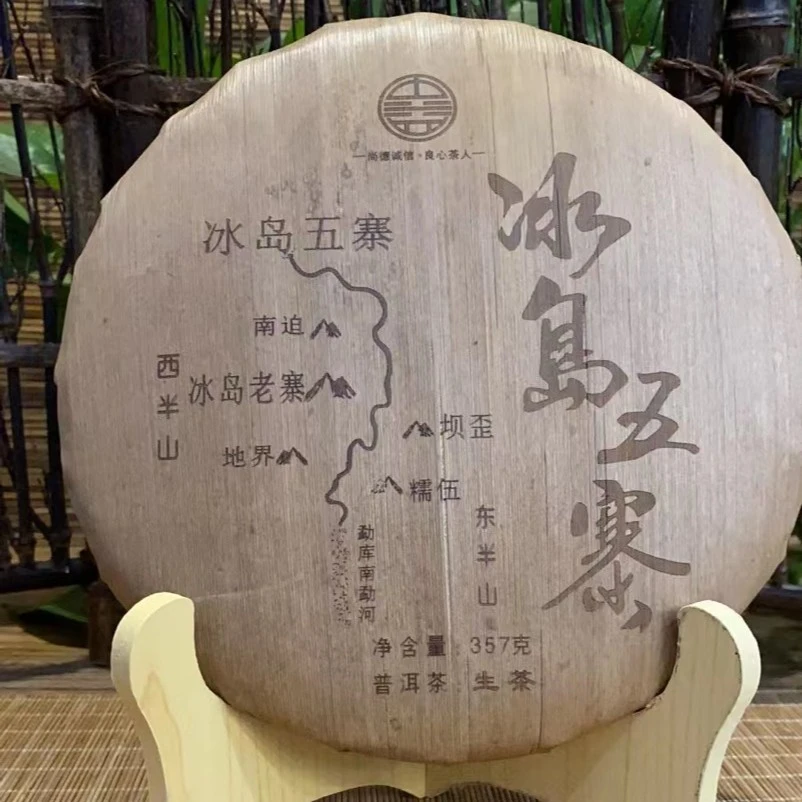 尚德诚信·良心茶人
冰岛五寨
冰島五寨
南迫
西半山
冰岛老寨
地界
坝歪
糯伍
东半山
勐库南勐河
净含量：357克
普洱茶：生茶